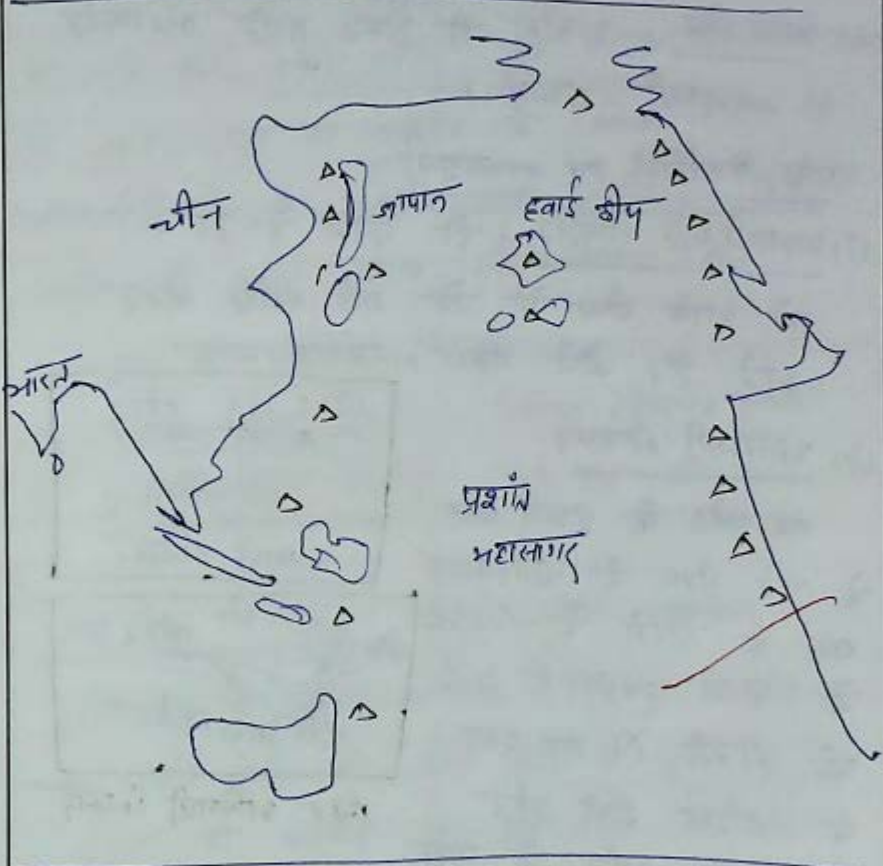 चीन
जापान
हवाई द्वीप
भारत
प्रशांत
महासागर